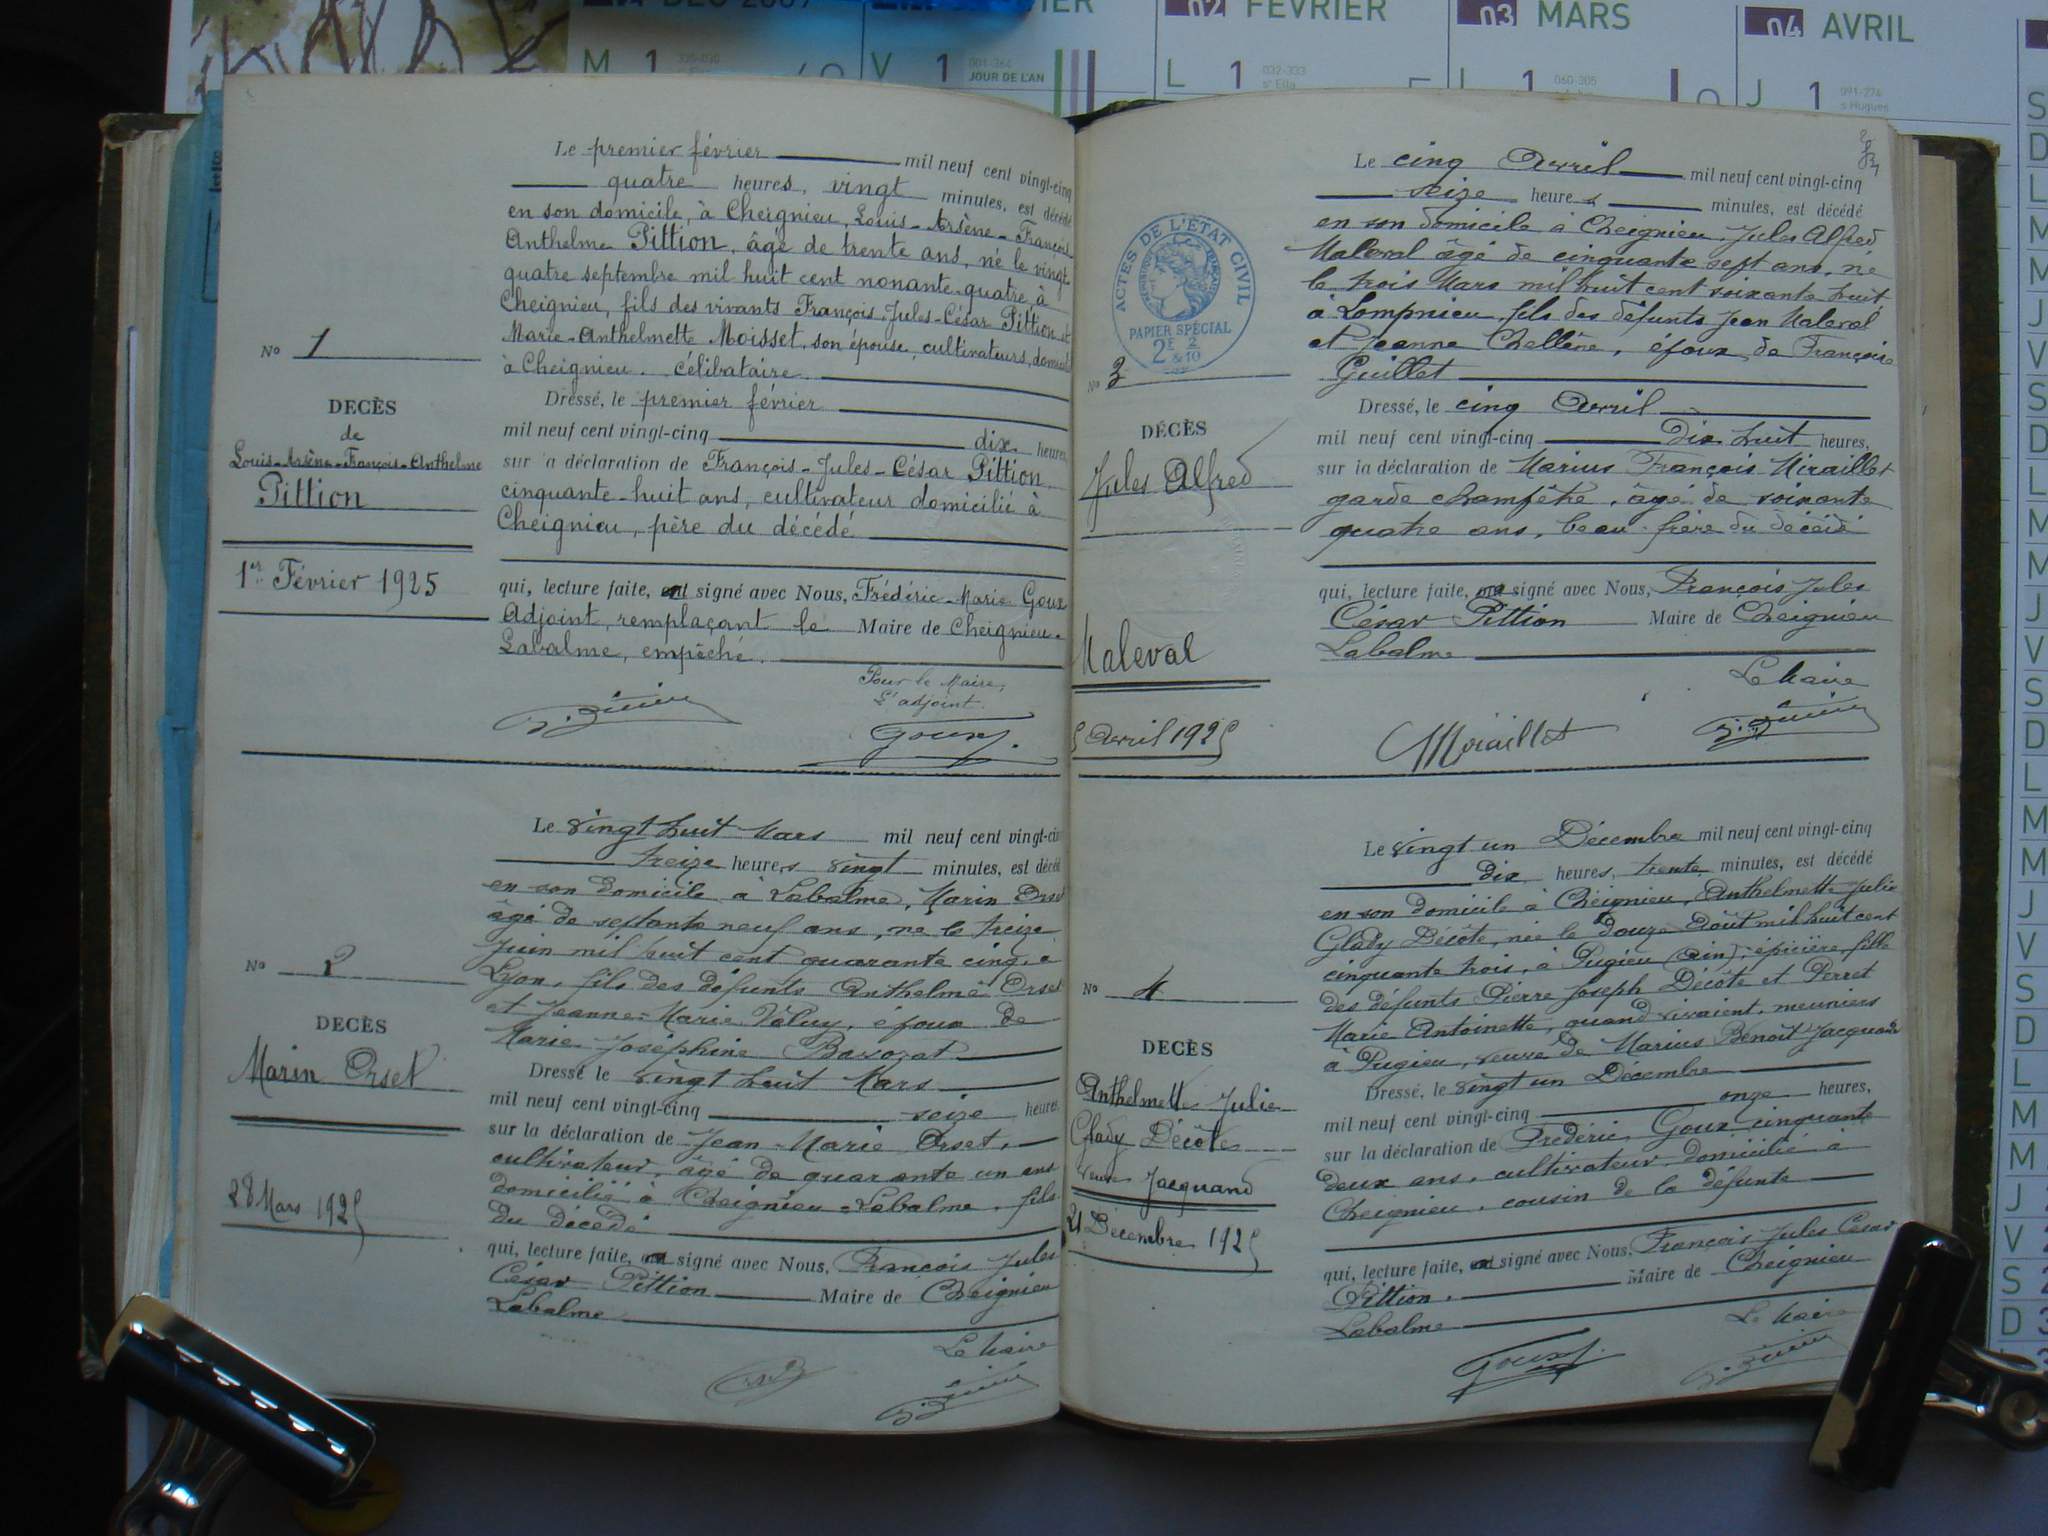 DEC 2009
02 FEVRIER
03 MARS
04 AVRIL
M 1
V 1 001-364 JOUR DE L'AN
L 1 032-333
L 1 060-305
J 1 091-274 s Hugues
Le premier février mil neuf cent vingt-cinq
quatre heures, vingt minutes, est décédé
en son domicile, à Cheignieu, Louis-Arsène-François
Anthelme Pittion, âgé de trente ans, né le vingt
quatre septembre mil huit cent nonante-quatre à
Cheignieu, fils des vivants François-Jules-César Pittion et
Marie-Anthelmette Moisset, son épouse, cultivateurs, domiciliés
à Cheignieu. célibataire.
Dressé, le premier février
mil neuf cent vingt-cinq dix heures,
sur a déclaration de François-Jules-César Pittion,
cinquante-huit ans, cultivateur domicilié à
Cheignieu, père du décédé
qui, lecture faite, a signé avec Nous, Frédéric-Marie Goux
Adjoint, remplaçant le Maire de Cheignieu-
Labalme, empêché.
Pour le Maire,
L'adjoint.
Goux
No 1
DECÈS
de
Louis-Arsène-François-Anthelme
Pittion
1er Février 1925
Le vingt huit Mars mil neuf cent vingt-cin
treize heures vingt minutes, est décéd
en son domicile à Labalme, Marin Orset
âgé de septante neuf ans, né le treize
Juin mil huit cent quarante cinq, à
Lyon, fils des défunts Anthelme Orset
et Jeanne-Marie Valuy, époux de
Marie Joséphine Bavozat
Dressé le vingt huit Mars
mil neuf cent vingt-cinq seize heures,
sur la déclaration de Jean-Marie Orset,
cultivateur, âgé de quarante un ans
domicilié à Cheignieu-Labalme, fils
du décédé
qui, lecture faite, a signé avec Nous, François Jules
César Pittion Maire de Cheignieu
Labalme
Le Maire
No 2
DECÈS
Marin Orset
28 Mars 1925
Le cinq Avril mil neuf cent vingt-cinq
seize heures minutes, est décédé
en son domicile à Cheignieu, Jules Alfred
Maleval âgé de cinquante sept ans, né
le trois Mars mil huit cent soixante huit,
à Lompnieu, fils des défunts Jean Maleval
et Jeanne Chellène, époux de Françoise
Guillet
Dressé, le cinq Avril
mil neuf cent vingt-cinq dix huit heures,
sur la déclaration de Marius François Miraillet
garde champêtre, âgé de soixante
quatre ans, beau-frère du décédé
qui, lecture faite, a signé avec Nous, François Jules
César Pittion Maire de Cheignieu
Labalme
Le Maire
Miraillet
ACTES DE L'ETAT CIVIL
PAPIER SPÉCIAL
2E & 2/10
No 3
DÉCÈS
Jules Alfred
Maleval
5 Avril 1925
Le vingt un Décembre mil neuf cent vingt-cinq
dix heures, trente minutes, est décédé
en son domicile à Cheignieu, Anthelmette Julie
Glady Décôte, née le douze Août mil huit cent
cinquante trois, à Pugieu (Ain), épicière fille
des défunts Pierre Joseph Décôte et Perret
Marie Antoinette, quand vivaient, meuniers
à Pugieu, veuve de Marius Benoît Jacquand
Dressé, le vingt un Décembre
mil neuf cent vingt-cinq onze heures,
sur la déclaration de Frédéric Goux cinquante
deux ans, cultivateur domicilié à
Cheignieu, cousin de la défunte
qui, lecture faite, a signé avec Nous, François Jules César
Pittion. Maire de Cheignieu
Labalme
Le Maire
Goux
No 4
DECÈS
Anthelmette Julie
Glady Décôte
veuve Jacquand
21 Décembre 1925